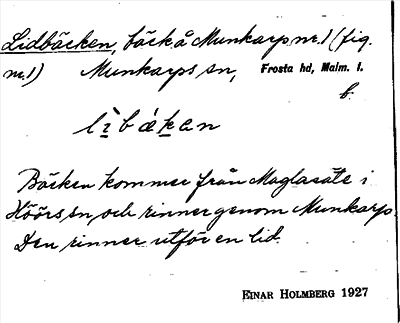 Lidbäcken, bäck å Munkarp nr. 1 (fig.
nr. 1) Munkarps sn, Frosta hd, Malm. l.
b.
lìbáken
Bäcken kommer från Maglasäte i
Höörs sn, och rinner genom Munkarp.
Den rinner utför en lid.
EINAR HOLMBERG 1927